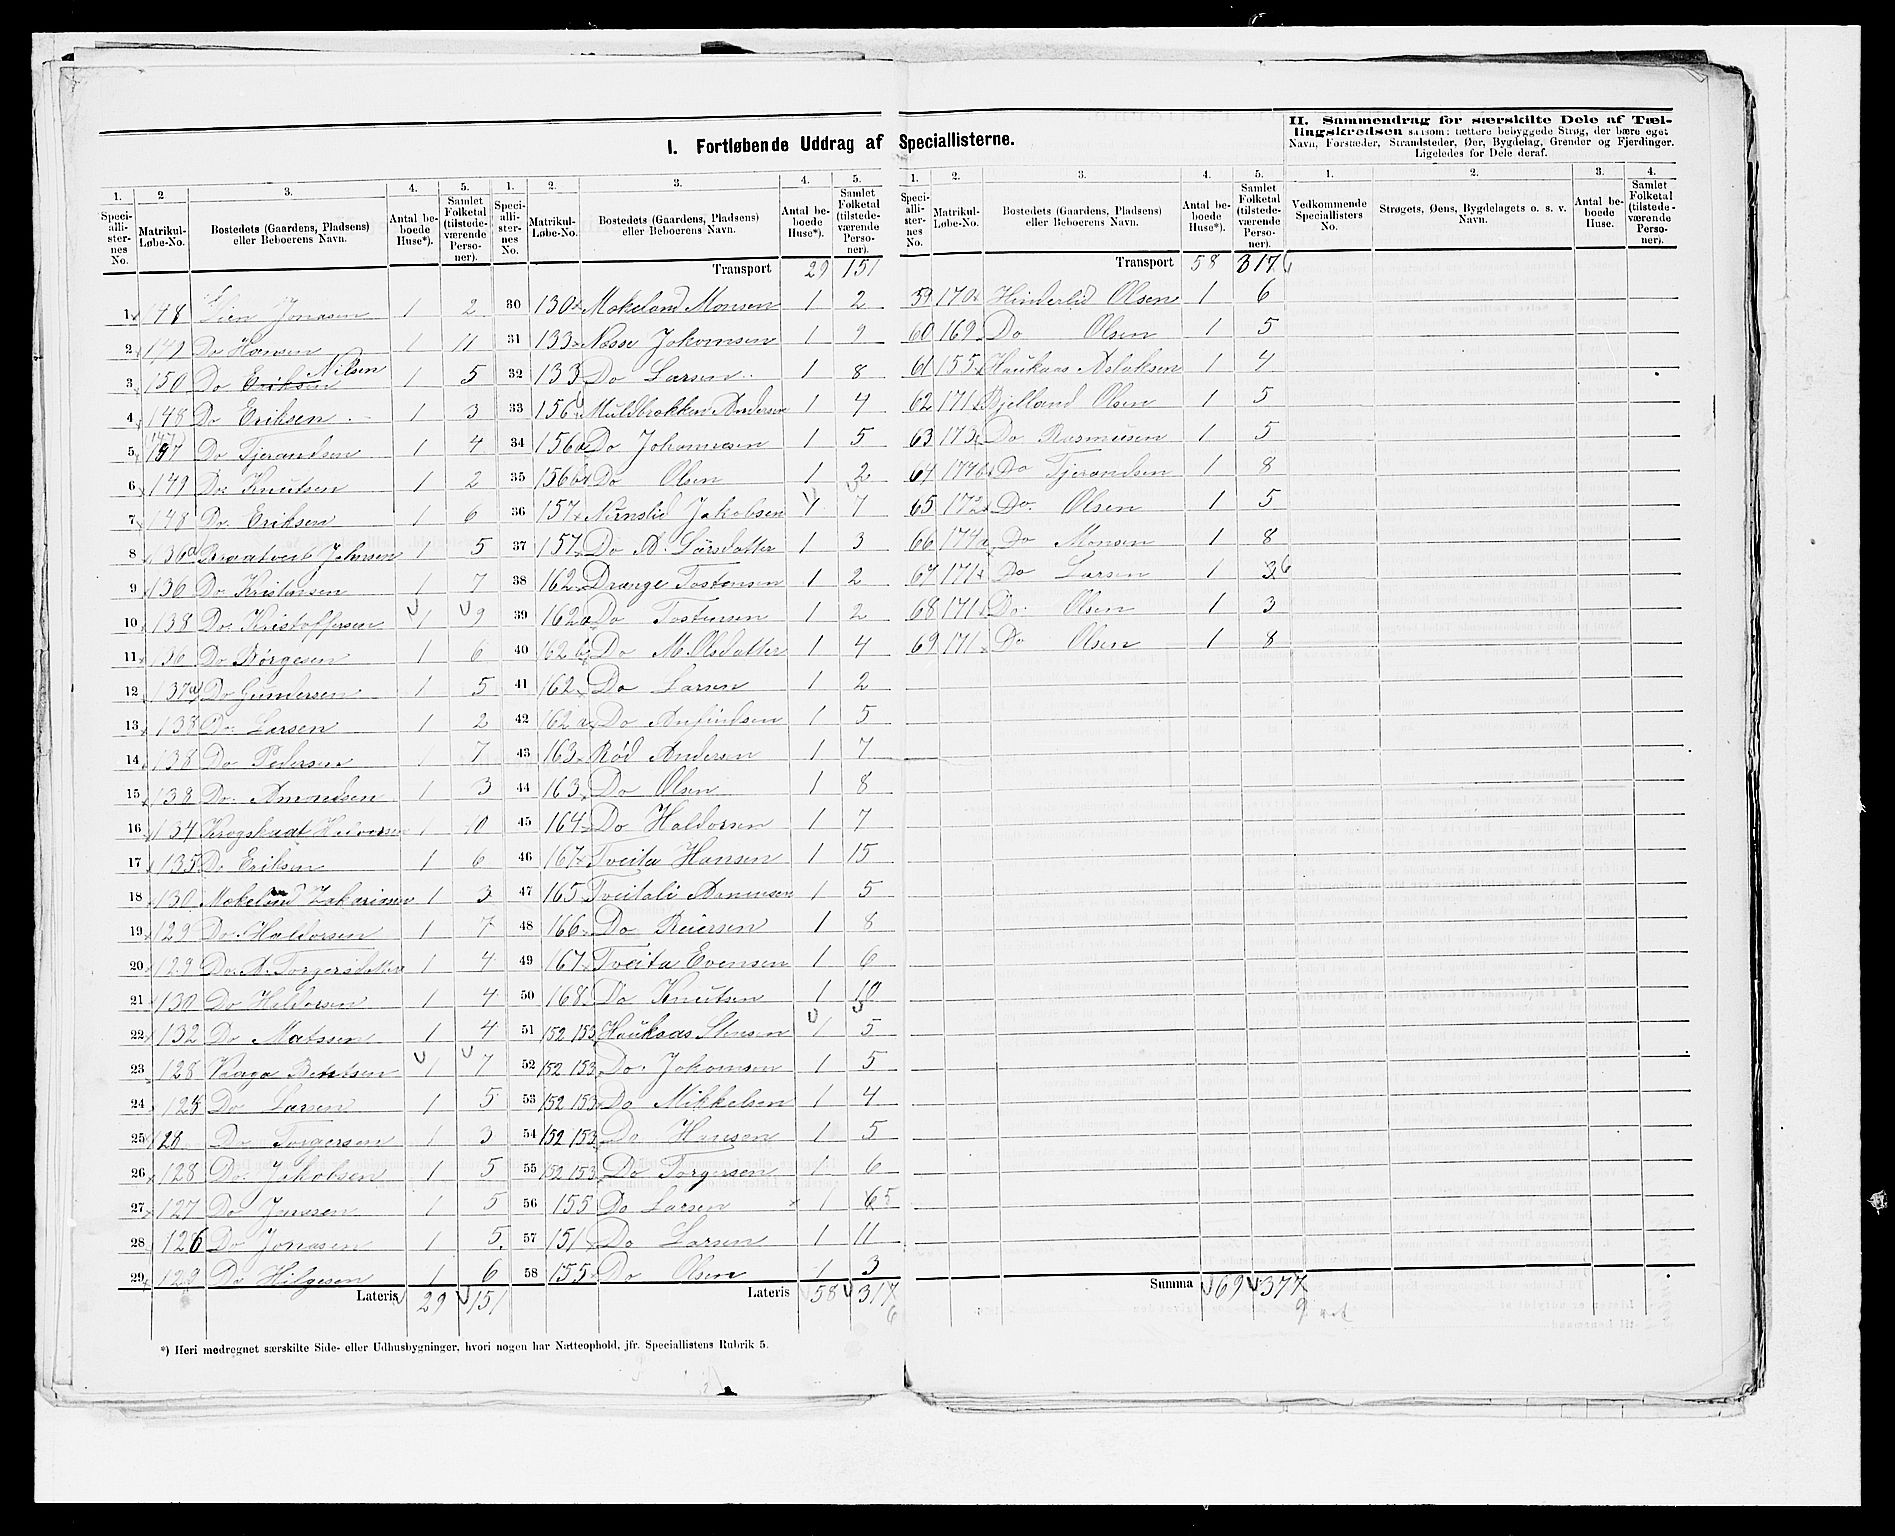 I. Fortløbende Uddrag af Speciallisterne.
II. Sammendrag for særskilte Dele af Tæl-
lingskredsen saasom: tættere bebyggede Strøg, der bære eget
Navn, Forstæder, Strandsteder, Øer, Bygdelag, Grender og Fjerdinger.
Ligeledes for Dele deraf.
1. 2 3. 4. 5.
Speciallisternes No. Matrikul-Løbe-No. Bostedets (Gaardens, Pladsens) eller Beboerens Navn. Antal beboede Huse*). Samlet Folketal (tilstedeværende Personer).
1 148 Lien Jonasen 1 2
2 149 Do Hansen 1 11
3 150 Do Eriksen Nilsen 1 5
4 148 Do Eriksen 1 3
5 147 Do Tjerandsen 1 4
6 149 Do Knutsen 1 2
7 148 Do Eriksen 1 6
8 136a Braatveit Johnsen 1 5
9 136 Do Kristensen 1 7
10 138 Do Kristoffersen 1 9
11 136 Do Børgesen 1 6
12 137a Do Gundersen 1 5
13 138 Do Larsen 1 2
14 138 Do Pedersen 1 7
15 138 Do Amondsen 1 3
16 134 Krogstveit Halvorsen 1 10
17 135 Do Eriksen 1 6
18 130 Mokeland Zakariasen 1 3
19 129 Do Haldorsen 1 7
20 129 Do A. Torgersdatter 1 4
21 130 Do Haldorsen 1 4
22 132 Do Matssen 1 4
23 128 Vaaga Bentsen 1 7
24 128 Do Larsen 1 5
25 128 Do Torgersen 1 3
26 128 Do Jakobsen 1 5
27 127 Do Jensen 1 5
28 126 Do Jonasen 1 5.
29 129 Do Helgesen 1 6
Lateris 29 151
1. 2. 3. 4. 5.
Speciallisternes No. Matrikul-Løbe-No. Bostedets (Gaardens, Pladsens) eller Beboerens Navn. Antal beboede Huse*). Samlet Folketal (tilstedeværende Personer).
Transport 29 151
30 130 Mokeland Monsen 1 2
31 133 Nesse Jokomsen 1 9
32 133 Do Larsen 1 8
33 156 Muldbrokken Andersen 1 4
34 156a Do Johannesen 1 5
35 156b Do Olsen 1 2
36 157 Nernslid Jakobsen 1 7
37 157 Do A. Larsdatter 1 3
38 162 Drange Tostensen 1 2
39 162a Do Tostensen 1 2
40 162b Do M. Olsdatter 1 4
41 162 Do Larsen 1 2
42 162a Do Anfindsen 1 5
43 163 Rød Andersen 1 7
44 163 Do Olsen 1 8
45 164 Do Haldorsen 1 7
46 167 Tveita Hansen 1 15
47 165 Tveitali Amunsen 1 5
48 166 Do Reiersen 1 8
49 167 Tveita Evensen 1 6
50 168 Do Knutsen 1 10
51 152 153 Haukaas Stensen 1 5
52 152 153 Do Jokomsen 1 5
53 152 153 Do Mikkelsen 1 4
54 152 153 Do Hansen 1 5
55 152 153 Do Torgersen 1 6
56 155 Do Larsen 1 6 5
57 151 Do Larsen 1 11
58 155 Do Olsen 1 3
Lateris 58 317
6
1. 2. 3. 4. 5.
Speciallisternes No. Matrikul-Løbe-No. Bostedets (Gaardens, Pladsens) eller Beboerens Navn. Antal beboede Huse*). Samlet Folketal (tilstedeværende Personer).
Transport 58 317
59 170 Hinderlid Olsen 1 6
60 169 Do Olsen 1 5
61 155 Haukaas Aslaksen 1 4
62 171 Bjelland Olsen 1 5
63 173 Do Rasmusen 1 5
64 174b Do Tjerandsen 1 8
65 172 Do. Olsen 1 5
66 174a Do Monsen 1 8
67 171 Do Larsen 1 3 6
68 171 Do. Olsen 1 3
69 171 Do Olsen 1 8
Summa 69 377
9
1. 2. 3. 4.
Vedkommende Speciallisters No. Strøgets, Øens, Bygdelagets o. s. v. Navn. Antal beboede Huse. Samlet Folketal (tilstedeværende Personer).
*) Heri medregnet særskilte Side- eller Udhusbygninger, hvori nogen har Natteophold, jfr. Speciallistens Rubrik 5.